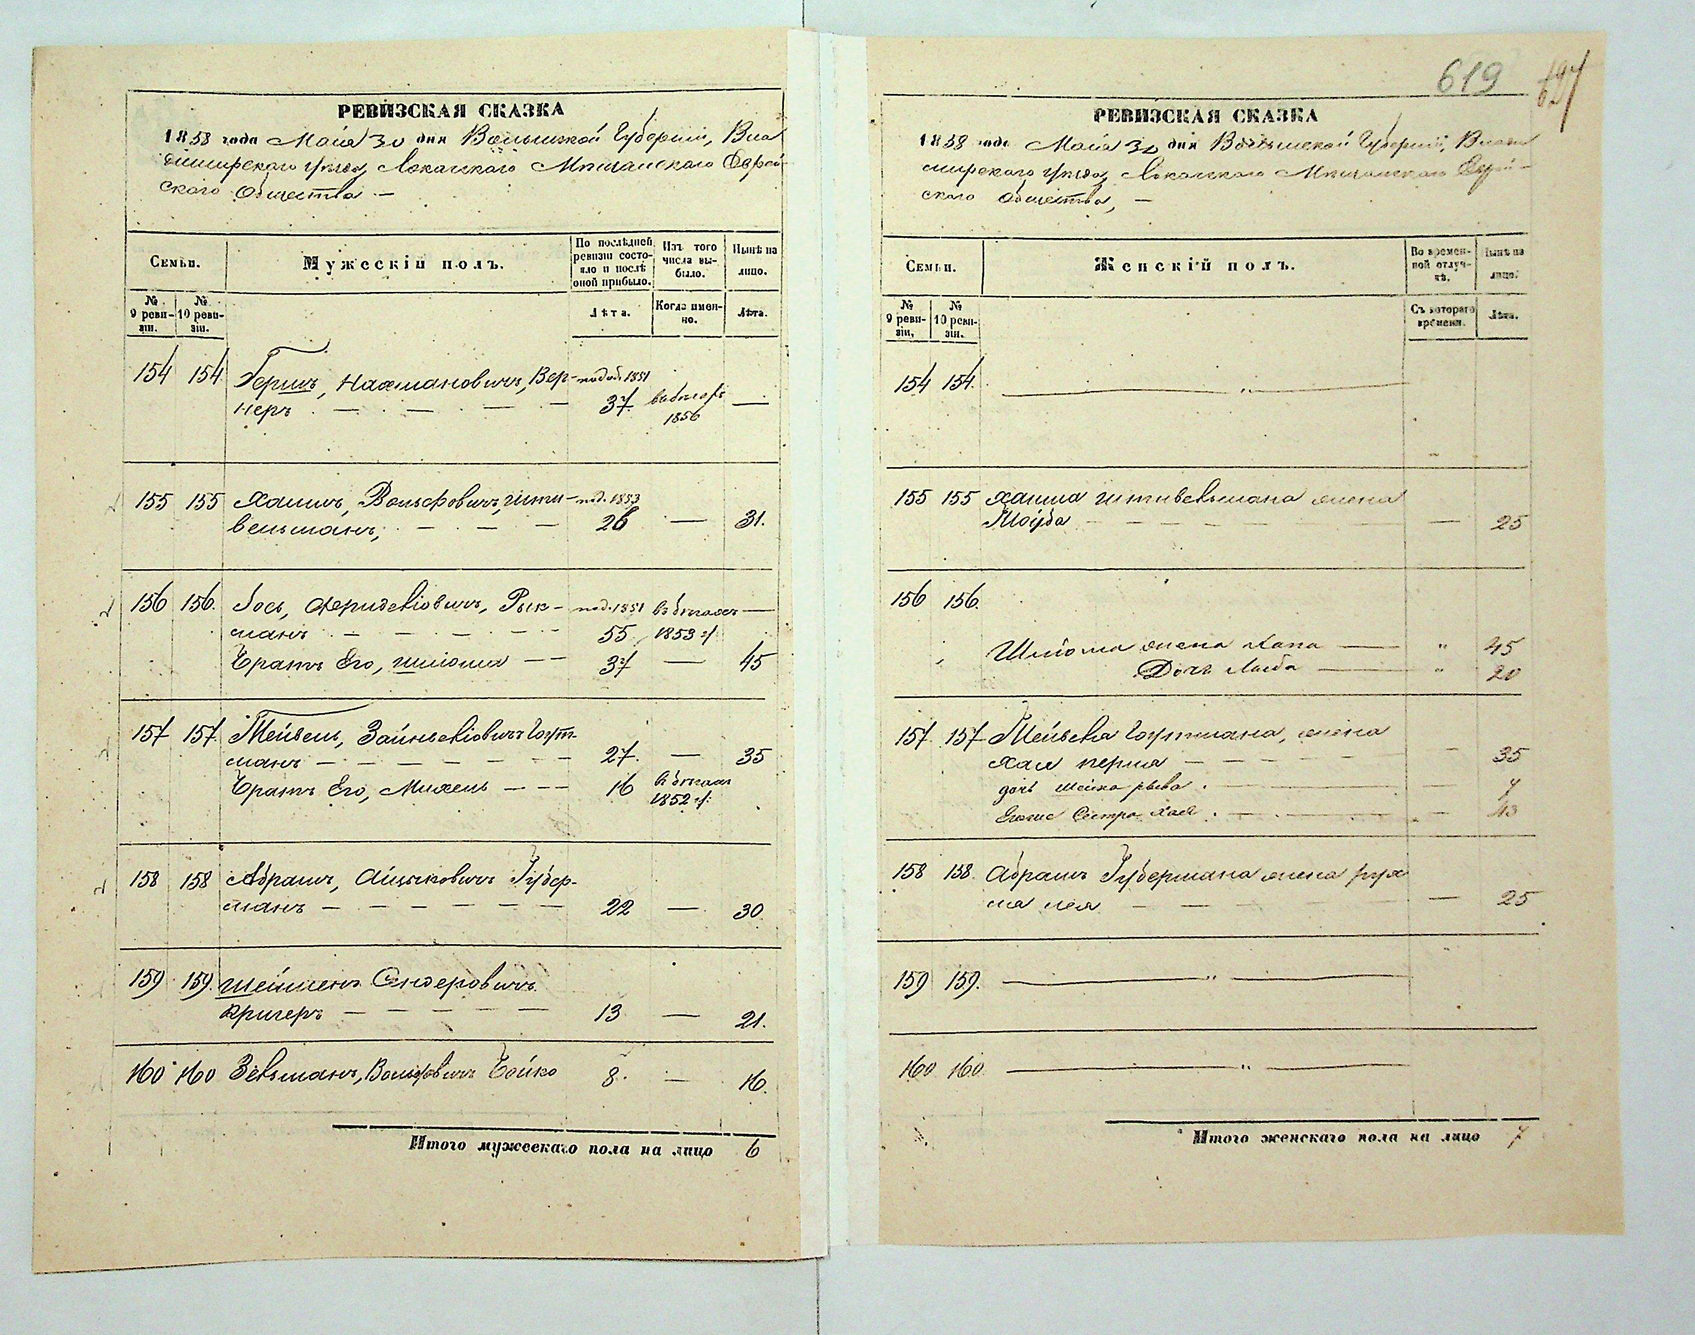 РЕВИЗСКАЯ СКАЗКА
1858 года Мая 30 дня Волынской Губернии, Вла
димирскаго уезда, Локачскаго Мещанскаго Еврей-
скаго общества —
Семьи.
Мужескій полъ.
По послѣдней ревизіи состо-яло и послѣ оной прибыло.
Изъ того числа вы-было.
Нынѣ на лицо.
№ 9 реви-зіи.
№ 10 реви-зіи.
Лѣта.
Когда имен-но.
Лѣта.
154 154 Гершъ, Нахмановичъ, Вер- 1851
неръ — — — — 37 1856 —
155 155 Хаимъ, Вольфовичъ, Шти- 1853
вельманъ, — — — 26 — 31.
156 156. Іось, Рык- 1851 въ бегахъ —
манъ — — — — 55 1853 г.
Братъ Его, Шліома — — 37 — 45
157 157. Мейвель, Зайнвеліовичъ Гут-
манъ — — — — — — 27. — 35
Братъ Его, Михель — — — 16 въ бегахъ
1852 г.
158 158 Абрамъ, Айцыковичъ Губер-
манъ — — — — — — 22 — 30.
159 159. Сендеровичъ
Кригеръ — — — — — 13 — 21.
160 160 Зельманъ, Вольфовичъ Бойко 8. — 16.
Итого мужескаго пола на лицо 6
619
РЕВИЗСКАЯ СКАЗКА
1858 года Мая 30 дня Волынской Губернии, Влади
мирскаго уезда, Локачскаго Мещанскаго Еврей-
скаго общества, —
Семьи.
Женскій полъ.
Во времен-ной отлуч-кѣ.
Нынѣ на лицо.
№ 9 реви-зіи.
№ 10 реви-зіи.
Съ котораго времени.
Лѣта.
154 154. — " —
155 155 Хаима Штивельмана жена
— — — — — — 25
156 156.
Шліома жена Хана — " 45
Дочь Либа — " 20
157. 157 Мейвеля Гутмана, жена
Хая Перля — — — — — 35
дочь Шейна рыва. — — 7
сестра Хая. — — — 43
158 158. Абрамъ Губермана жена рух
ма лея — — — 25
159 159. — " —
160 160 — " —
Итого женскаго пола на лицо 7